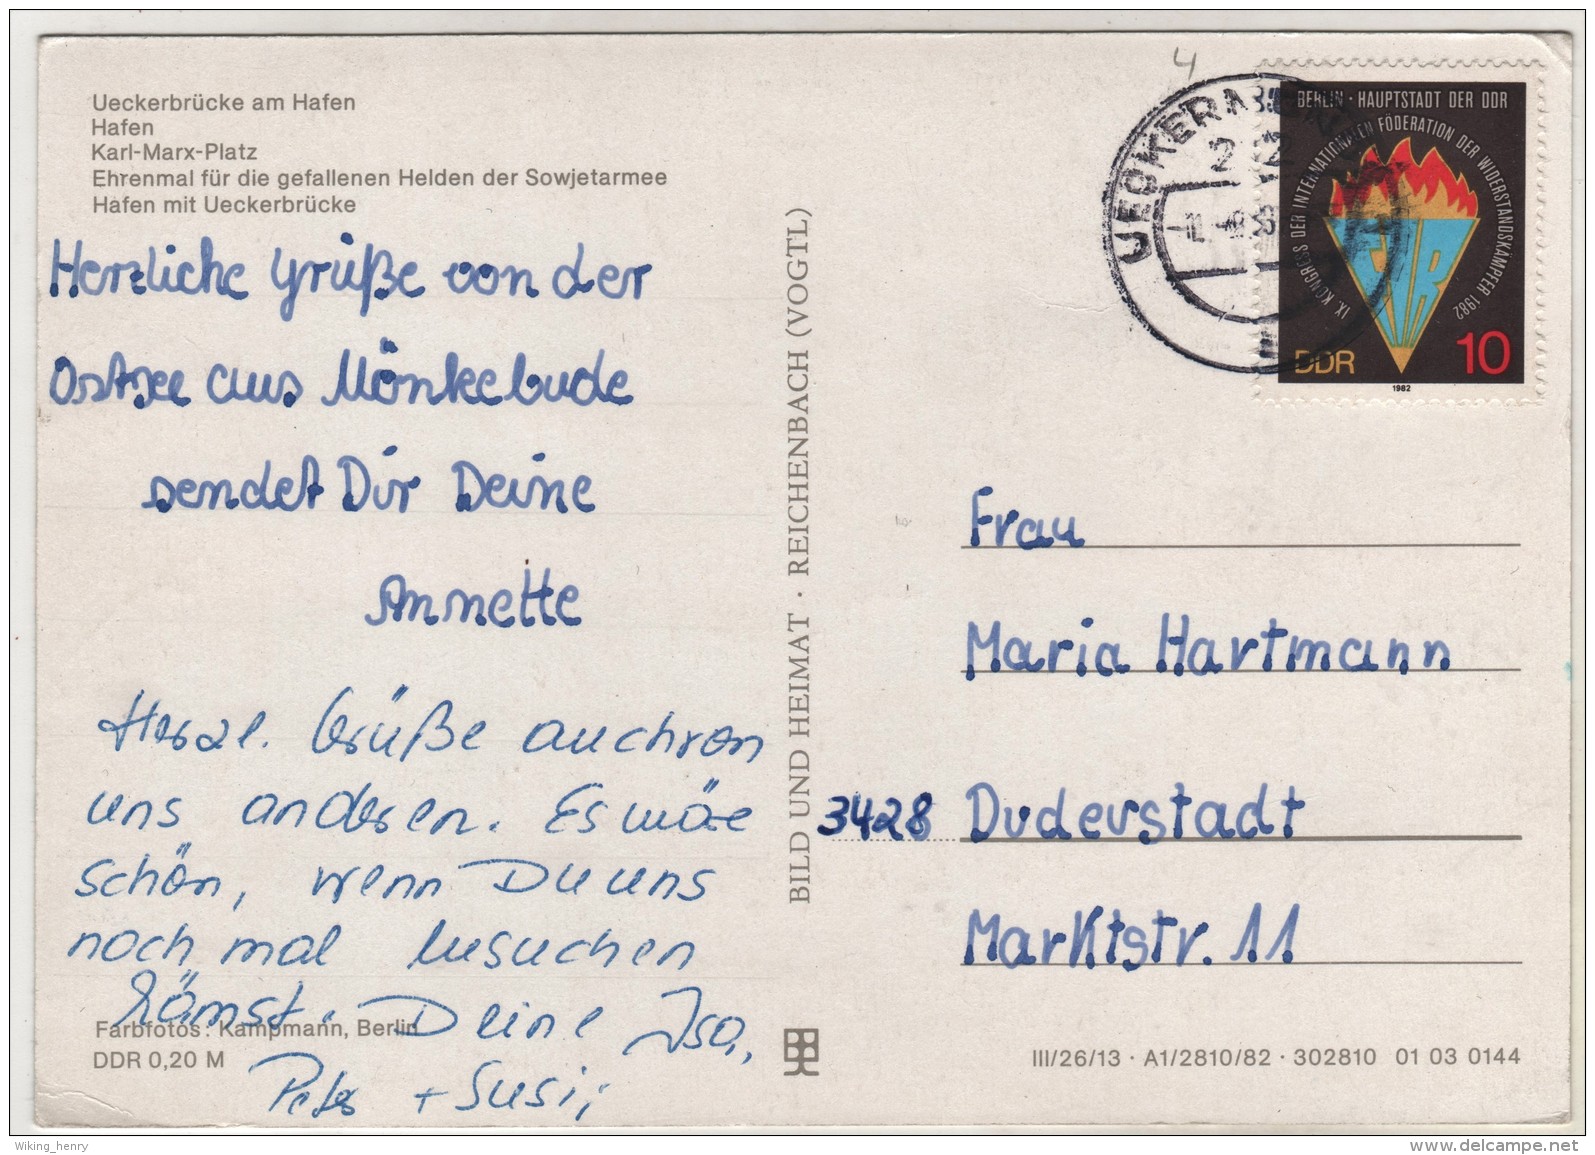 Ueckerbrücke am Hafen
Hafen
Karl-Marx-Platz
Ehrenmal für die gefallenen Helden der Sowjetarmee
Hafen mit Ueckerbrücke
Herzliche Grüße von der
Ostsee aus Mönkebude
sendet Dir Deine
Annette
Herzl. Grüße auch von
uns anderen. Es wäre
schön, wenn Du uns
noch mal besuchen
kämst. Deine Isa,
Peter + Susi,
Farbfotos: Kampmann, Berlin
DDR 0,20 M
BILD UND HEIMAT · REICHENBACH (VOGTL)
4
BERLIN · HAUPTSTADT DER DDR
IX. KONGRESS DER INTERNATIONALEN FÖDERATION DER WIDERSTANDSKÄMPFER 1982
FIR
DDR
10
1982
Frau
Maria Hartmann
3428 Duderstadt
Marktstr. 11
III/26/13 · A1/2810/82 · 302810 01 03 0144
Wiking_henry
www.delcampe.net